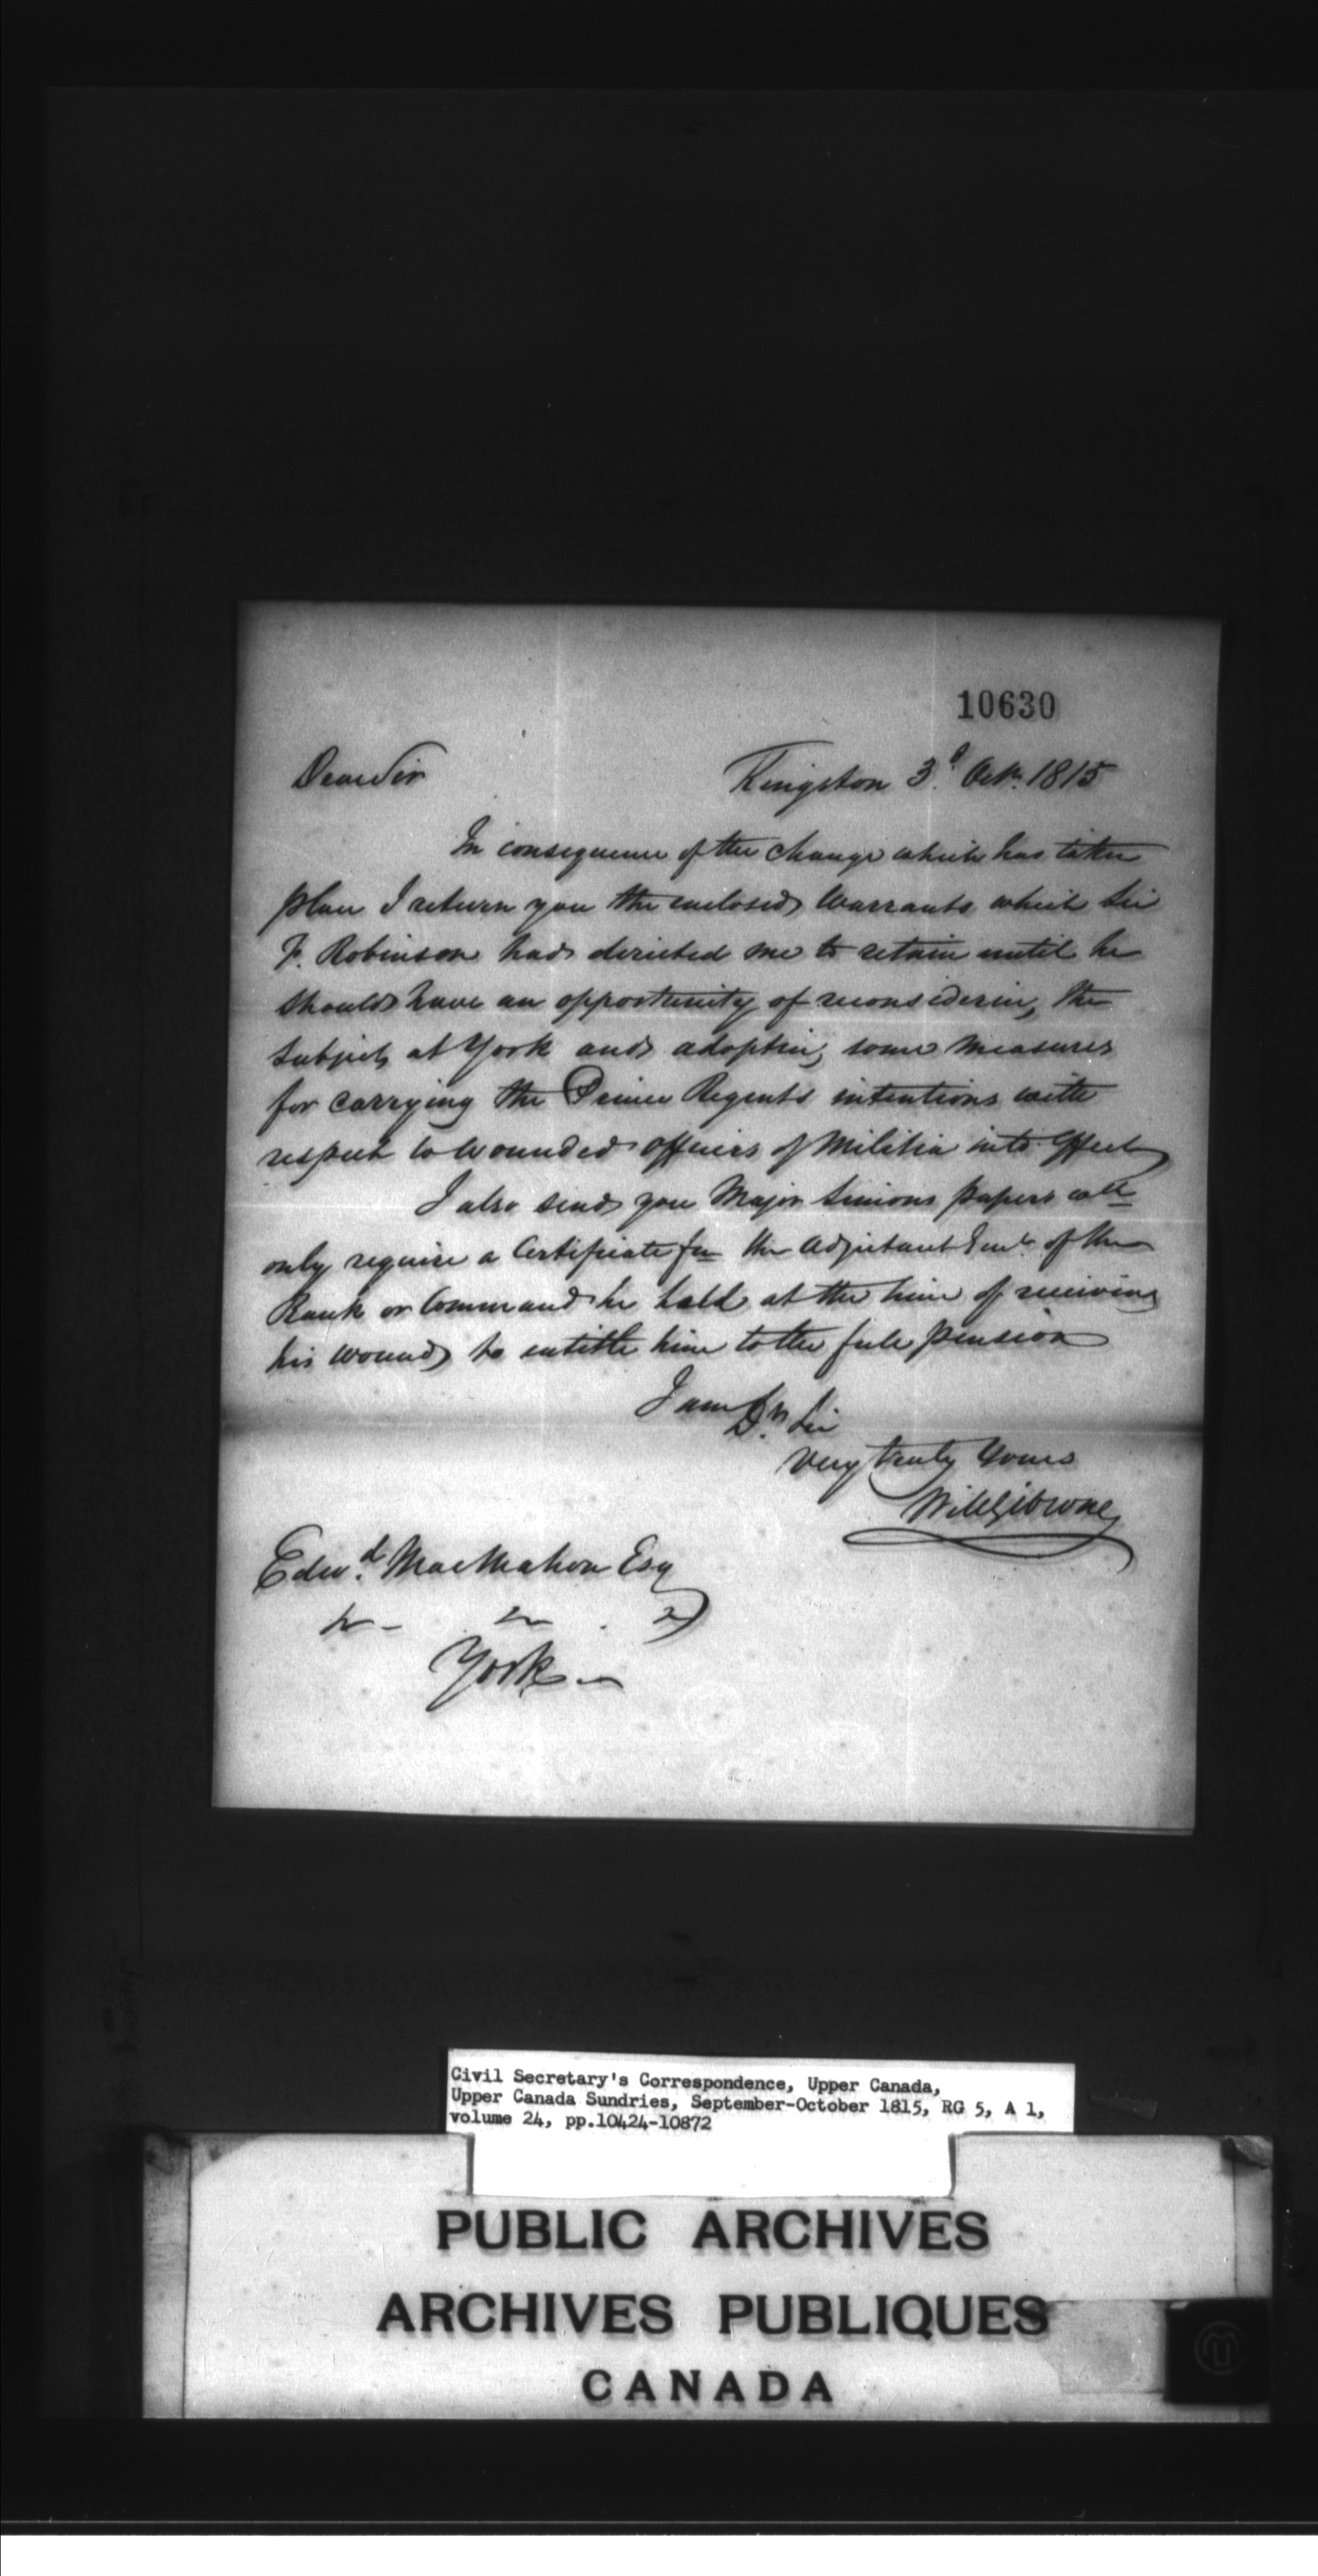 10630
Dear Sir
Kingston 3d. Octr. 1815
In consequence of the change which has taken
place I return you the enclosed Warrants which Sir
F. Robinson had directed me to retain until he
should have an opportunity of reconsidering the
subject at York and adopting some measures
for carrying the Prince Regents intentions with
respect to wounded officers of Militia into effect
I also send you Major Simons papers wch
only require a Certificate fm the Adjutant Genl. of the
Rank or Command he held at the time of receiving
his wound to entitle him to the full pension
I am Dr. Sir
very truly Yours
Will Gibsone
Edwd. MacMahon Esq
York
Civil Secretary's Correspondence, Upper Canada,
Upper Canada Sundries, September-October 1815, RG 5, A 1,
volume 24, pp.10424-10872
PUBLIC ARCHIVES
ARCHIVES PUBLIQUES
CANADA